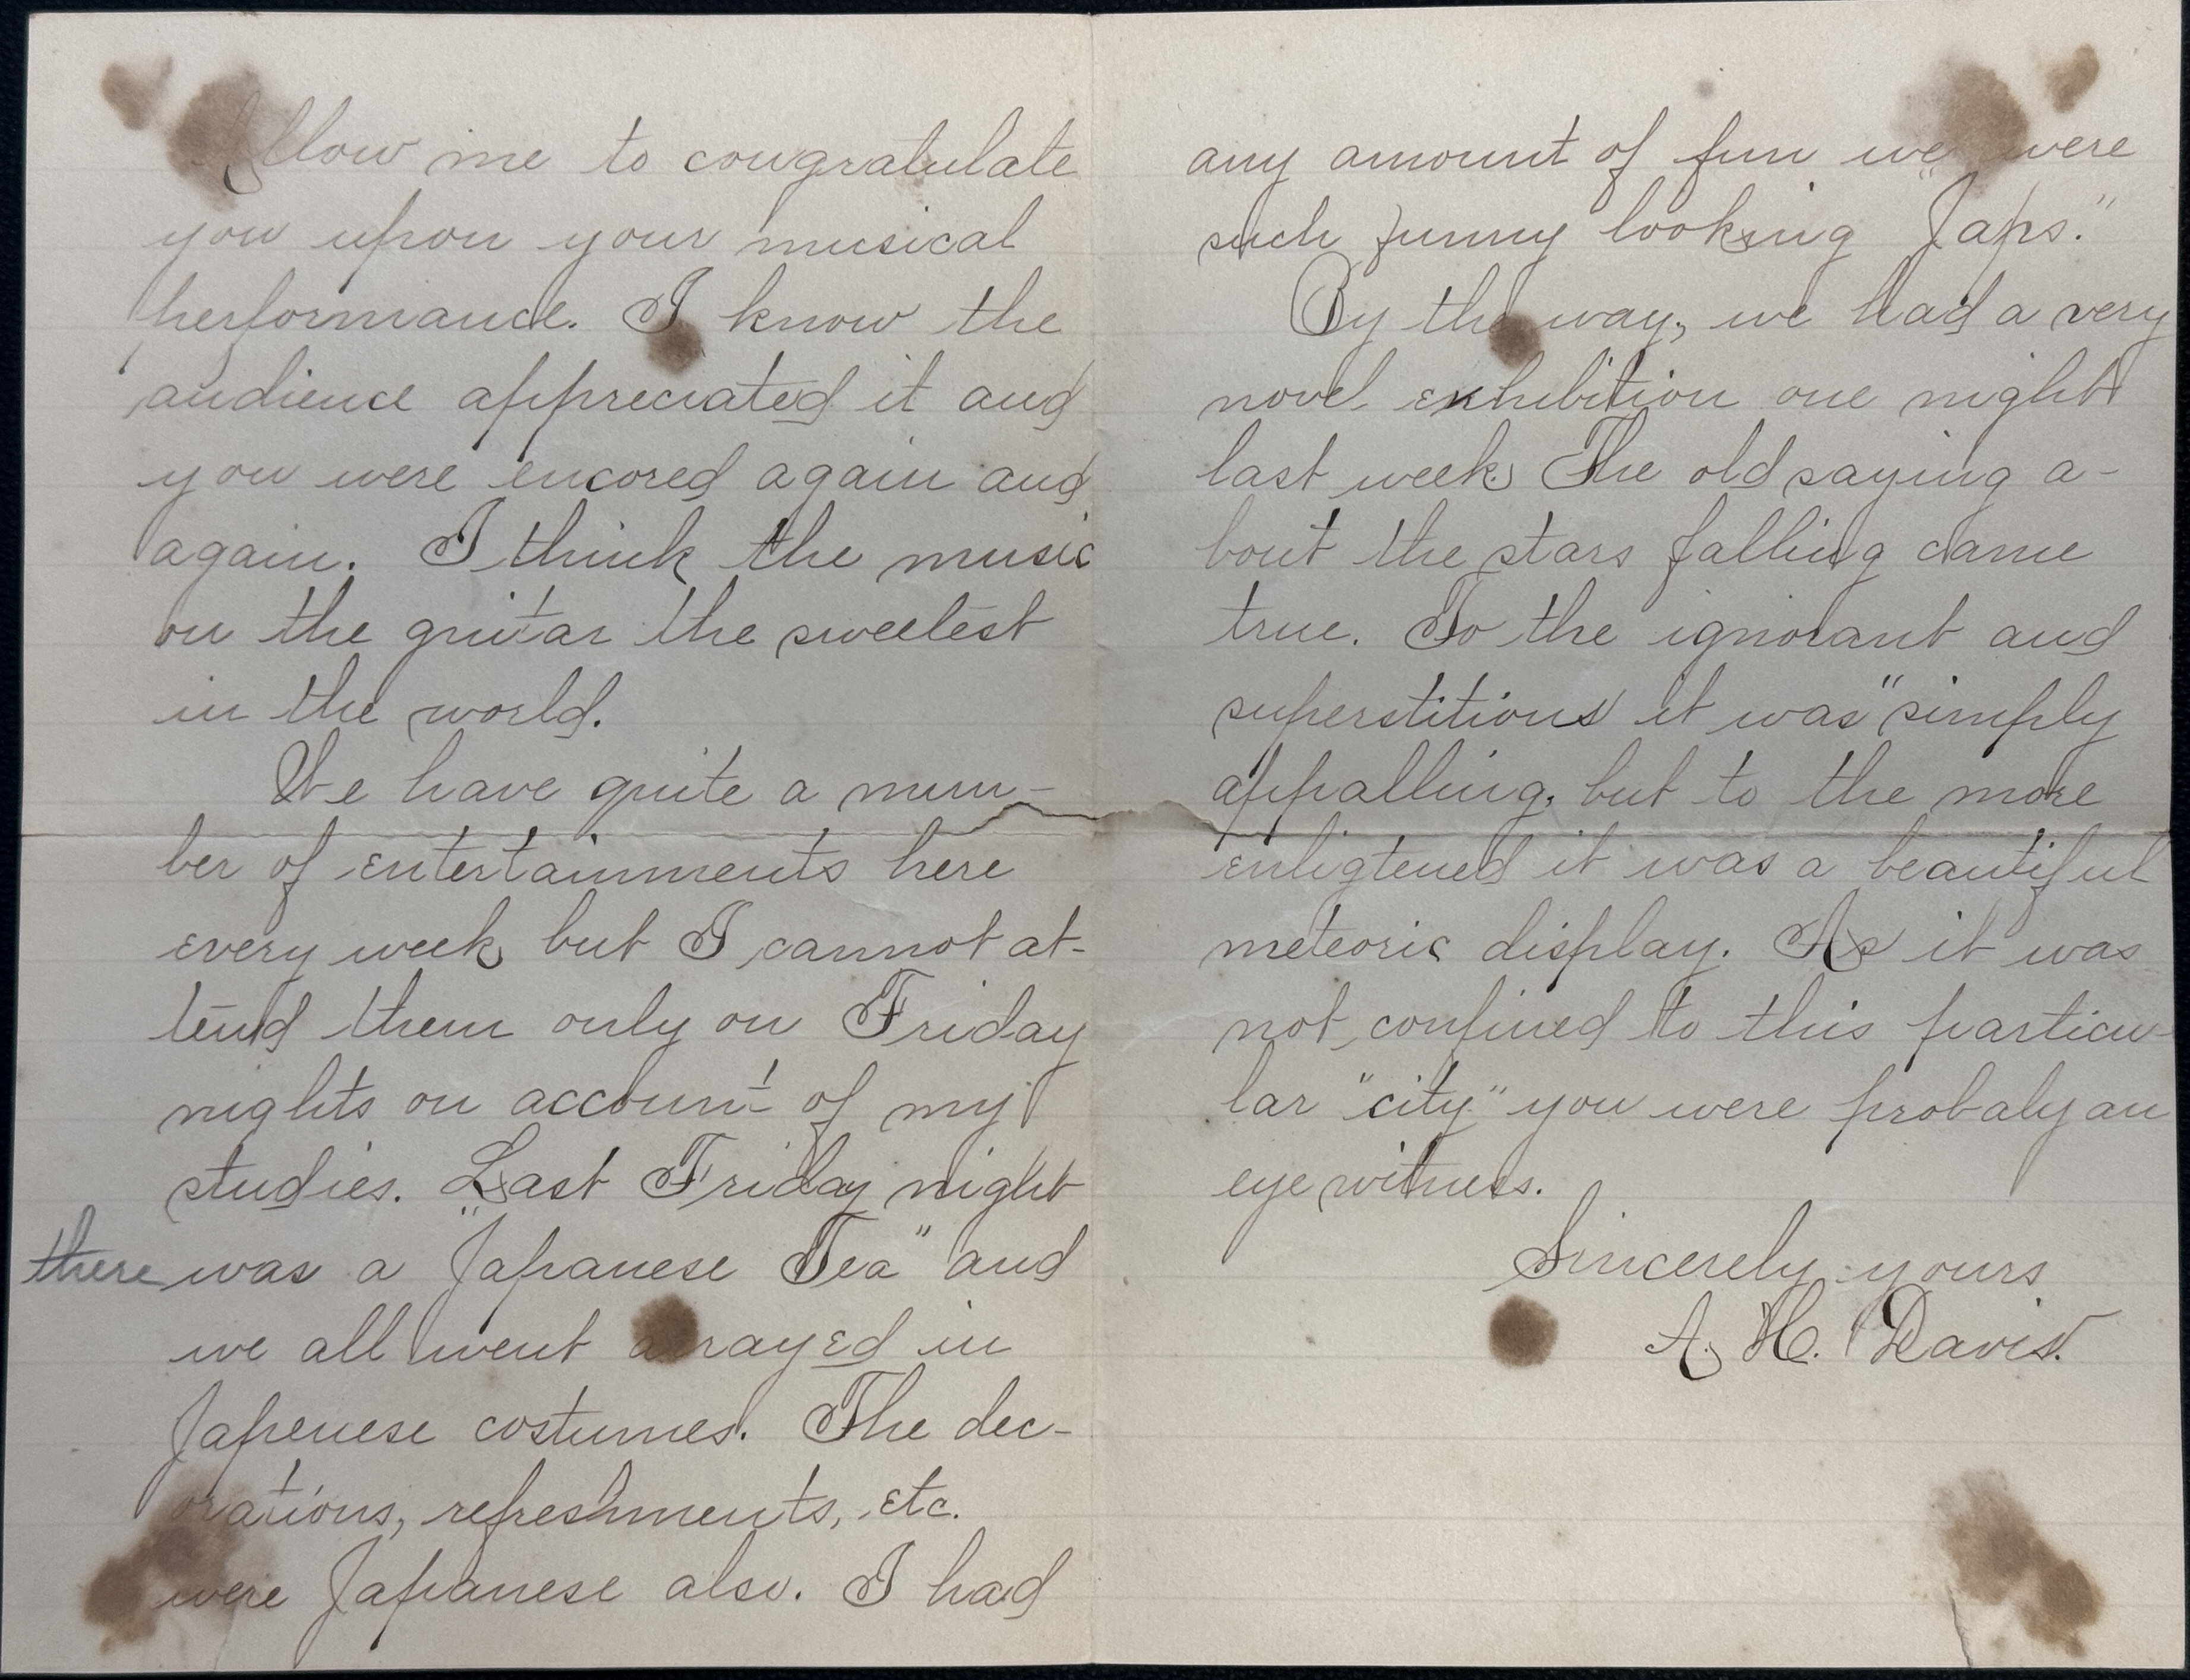 Allow me to congratulate
you upon your musical
performance. I know the
audience appreciated it and
you were encored again and
again. I think the music
on the guitar the sweetest
in the world.
We have quite a num-
ber of entertainments here
every week but I cannot at-
tend them only on Friday
nights on account of my
studies. Last Friday night
there was a "Japanese Tea" and
we all went arrayed in
Japenese costumes. The dec-
orations, refreshments, etc.
were Japanese also. I had
any amount of fun we were
such funny looking "Japs."
By the way, we had a very
novel exhibition one night
last week. The old saying a-
bout the stars falling came
true. To the ignorant and
superstitious it was "simply
appalling, but to the more
enligtened it was a beautiful
meteoric display. As it was
not confined to this particu-
lar "city" you were probaly an
eye witness.
Sincerely yours
A. H. Davis.